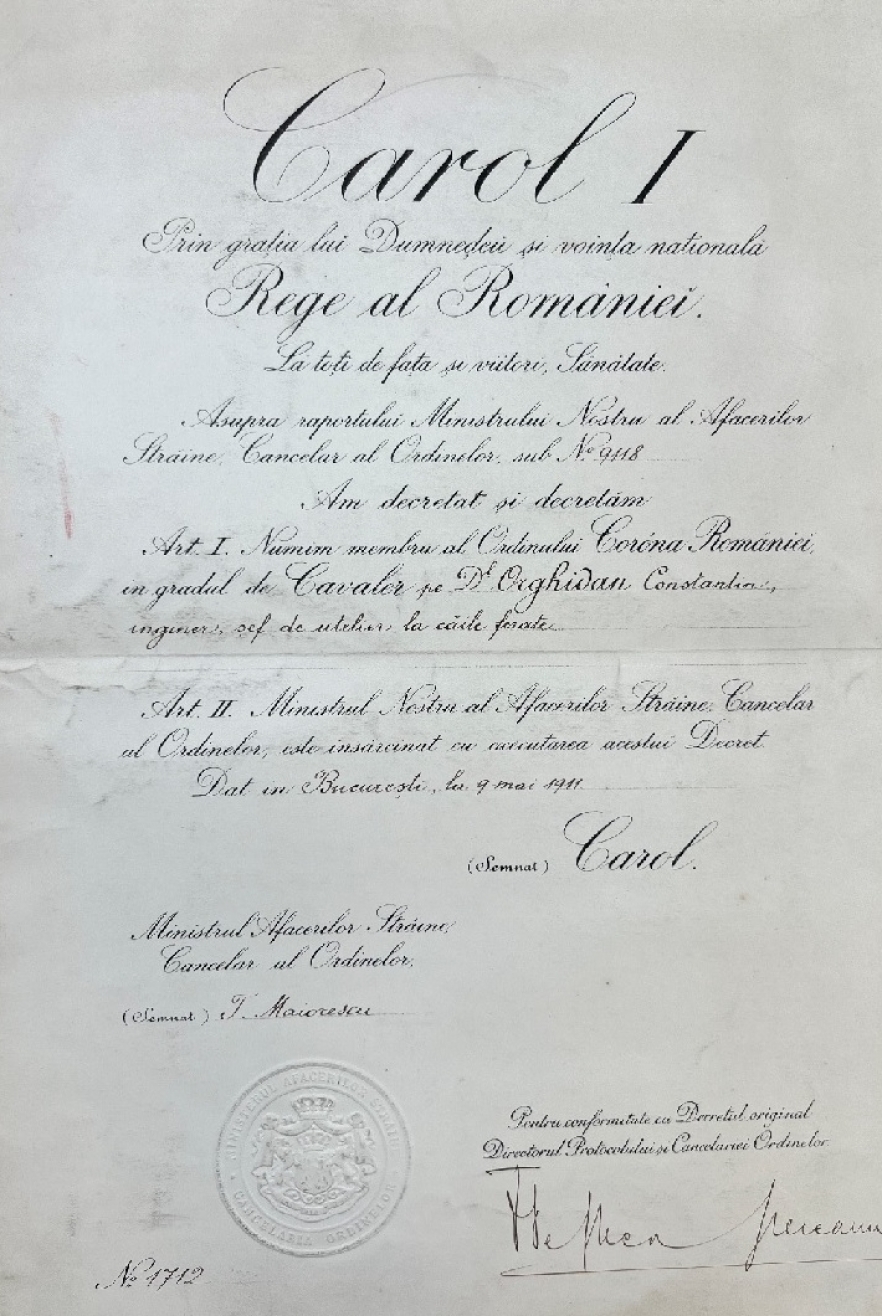 Carol I
Prin grația lui Dumnedeŭ și voința națională
Rege al României.
La toți de față și viitori, Sănătate.
Asupra raportului Ministrului Nostru al Afacerilor
Străine, Cancelar al Ordinelor, sub No 9118
Am decretat și decretăm
Art. I. Numim membru al Ordinului Coróna României,
in gradul de Cavaler pe Dl Orghidan Constantin,
inginer, șef de atelier la căile ferate
Art. II. Ministrul Nostru al Afacerilor Străine, Cancelar
al Ordinelor, este însărcinat cu executarea acestui Decret.
Dat in București, la 9 mai 1911
(Semnat) Carol.
Ministrul Afacerilor Străine,
Cancelar al Ordinelor,
(Semnat) T. Maiorescu
MINISTERUL AFACERILOR STRAINE
CANCELARIA ORDINELOR
Pentru conformitate cu Decretul original
Directorul Protocolului și Cancelariei Ordinelor
No 1712